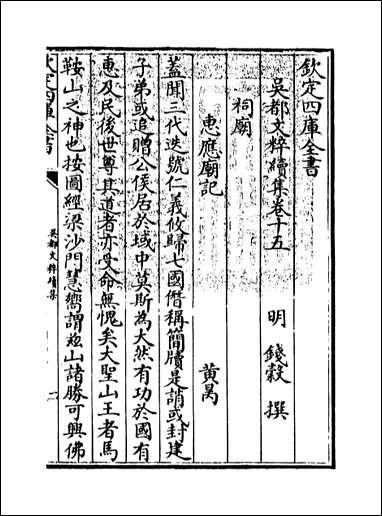 欽定四庫全書
吳都文粹續集卷十五
明 錢穀 撰
祠廟
惠應廟記 黃㬇
蓋聞三代迭號仁義攸歸七國僭稱簡牘是誚或封建
子弟或追贈公侯居於域中莫斯為大然有功於國有
惠及民後世尊其道者亦受命無愧矣大聖山王者馬
鞍山之神也按圖經梁沙門慧嚮謂兹山諸勝可興佛
欽定四庫全書
吳都文粹續集